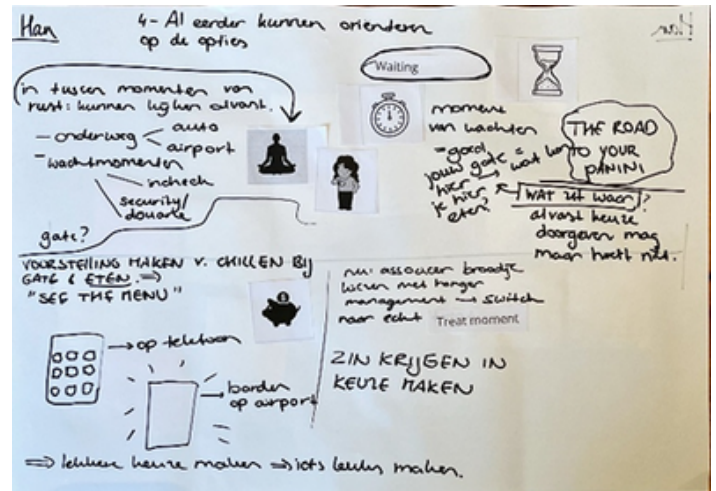 Han
4- Al eerder kunnen orienteren
op de opties
in tussen momenten van
rust: kunnen kijken alvast.
- onderweg
auto
airport
- wachtmomenten
incheck
security/
douane
gate?
Waiting
moment
van wachten
= goed
jouw gate =
hier → wat kun
je hier
eten?
THE ROAD
TO YOUR
PANINI
WAT zit waar?
alvast keuze
doorgeven mag
maar hoeft niet.
VOORSTELLING MAKEN V. CHILLEN BIJ
GATE & ETEN. ⇒
"SEE THE MENU"
→ op telefoon
→ borden
op airport
nu: associeer broodje
met hunger
management → switch
naar echt Treat moment
ZIN KRIJGEN IN
KEUZE MAKEN
⇒ lekkere keuze maken ⇒ iets leuks maken.